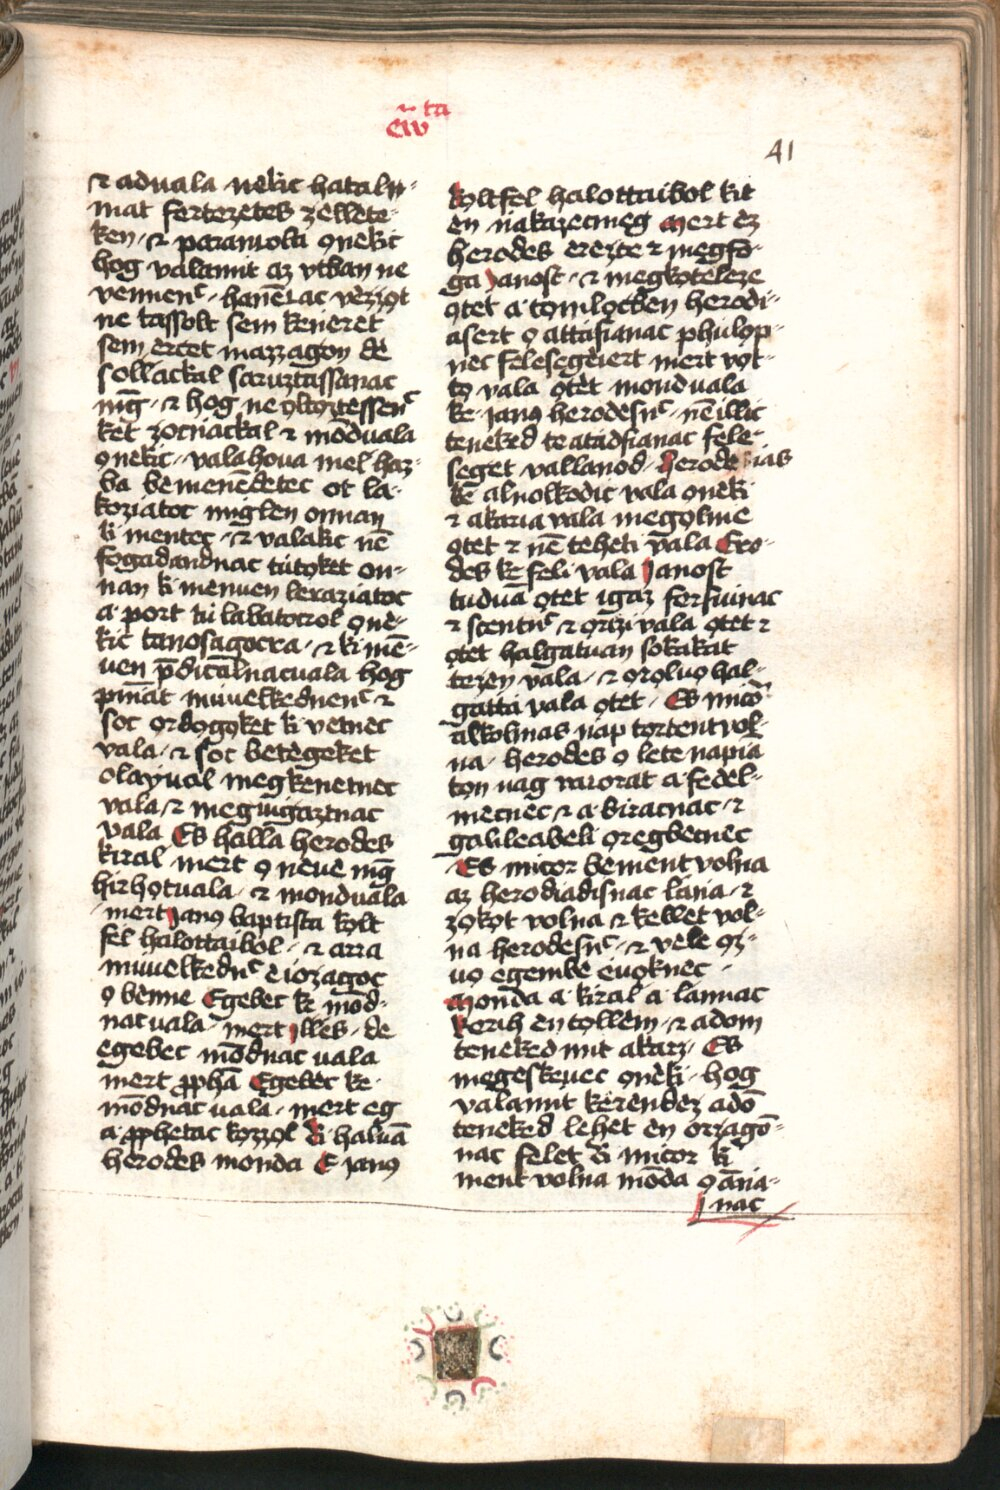 Ew̄ta
41
⁊ aduala nèkic hataln-
mat fertezètes zèllète-
ken ⁊ paramcola ọnèkic
hog valamit az vtban nė
vennenc̄ hanēiac vèzzọt
ne tassolt sem keńeret
sem ercet mazzagoṇ dė
sollackal saruztassanac
mḡ ⁊ hog nė ọltoztessenc̄
kèt zocńackal ⁊ mōduala
ọnèkic valahoua mèl haz-
ba bèmenēdetec ot la-
koziatoc miglen onnan
ki mentec ⁊ valakic nē
fogadandnac tutọket on-
nan ki mènuen lèraziatoc
a port tú labatocrol ọnė-
kic tanosagocra ⁊ kimē-
uen p̄dicalnacuala hog
pināat muuelkednenc̄ ⁊
soc ordọgọket ki vètnec
vala ⁊ soc bètėgeket
olayual mègkènètnec
vala ⁊ mègvigaztnac
vala Es halla herodes
kiral mert ọ nèuė mḡ
hirhọtuala ⁊ monduala
mert janus baptista kọlt
fel halottaibol ⁊ arra
muuelkednc̄ eiozagoc
ọ bennė Egèbec kē mōd-
nacuala mert illes dè
egèbec mōdnac uala
mert ꝓpha Egèbec kė
mōdnac uala mert èg
a ꝓphetac kọzzọl kit haluā
herodes monda E janus
kọltfel halottaibol kit
èn ńakazecmeg Mert èz
herodes èrezte ⁊ mègfo-
ga janost ⁊ mègkọtelèze
ọtet a tọmlọcben herodi-
asert ọ attafianac phulop-
nec felesegèiert mert vọt-
tọ vala ọtèt monduala
kė janus herodesnc̄ nē illic
teneked te atadfianac fele-
seget vallanod Herodesias
kė alnolkodic vala ọneki
⁊ akaria vala mègọlnie
ọtet ⁊ nē teheti vala Ero-
des kė feli vala janost
tuduā ọtet igaz ferfiuinac
⁊ scentnc̄ ⁊ ọrizi vala ọtet ⁊
ọtet halgatuan sokakat
tezen vala ⁊ ọrọluọ hal-
gattá vala ọtet Es micō
alkolmas nap tọrtent vol-
na herodes ọ lètenapia
ton nag vaɾorat a fedel-
mecnèc ⁊ a biracnac ⁊
galileabeli ọregbecnec
Es micor bement volna
az herodiadisnac lania ⁊
zọkọt volna ⁊ kellèt vol-
na herodesnc̄ ⁊ vèle ọz-
uọ egembè èuọknec
Monda a kiral a lannac
Kèrih èn tọllem ⁊ adom
teneked mit akarz Es
mègeskèuec ọneki hog
valamit kerendez adō
teneked lèhet èn orzagō-
nac felet Ki micor ki
ment volna mōda ọ ānia-
nac